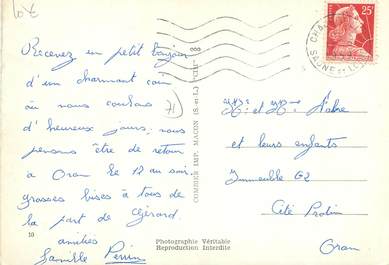 Recevez un petit bonjour
d'un charmant coin
où nous coulons
d'heureux jours, nous
pensons être de retour
à Oran le 12 au soir.
grosses bises à tous de
la part de Gérard.
amitiés
famille Perrin
10
71
COMBIER IMP. MACON (S.-et-L.) "CIM"
Photographie Véritable
Reproduction Interdite
25F
SAONE et LOIRE
Mr et Mme
et leurs enfants
Immeuble G2
Cité Protin
Oran